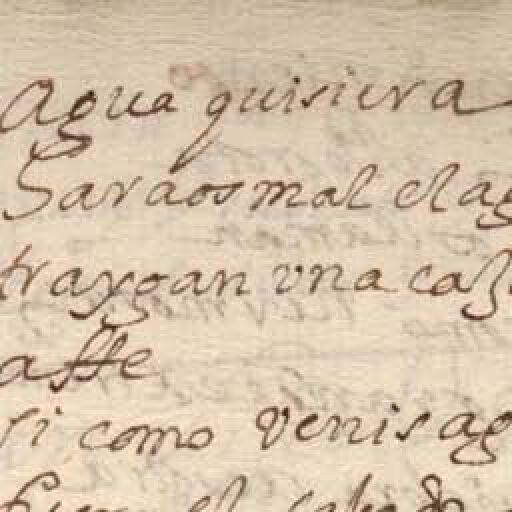 Agua quisiera
haraos mal el ag
traygan vna caz
affe
si como venis ag
el cabado